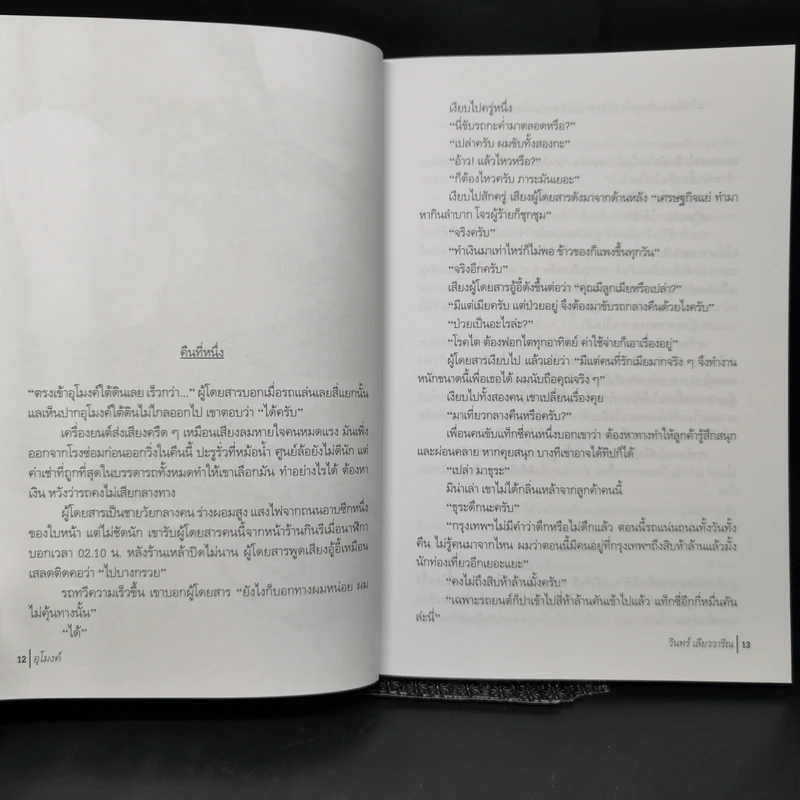 คืนที่หนึ่ง
“ตรงเข้าอุโมงค์ใต้ดินเลย เร็วกว่า...” ผู้โดยสารบอกเมื่อรถแล่นเลยสี่แยกนั้น
แลเห็นปากอุโมงค์ใต้ดินไม่ไกลออกไป เขาตอบว่า “ได้ครับ”
เครื่องยนต์ส่งเสียงครืด ๆ เหมือนเสียงลมหายใจคนหมดแรง มันเพิ่ง
ออกจากโรงซ่อมก่อนออกวิ่งในคืนนี้ ปะรูรั่วที่หม้อน้ำ ศูนย์ล้อยังไม่ดีนัก แต่
ค่าเช่าที่ถูกที่สุดในบรรดารถทั้งหมดทำให้เขาเลือกมัน ทำอย่างไรได้ ต้องหา
เงิน หวังว่ารถคงไม่เสียกลางทาง
ผู้โดยสารเป็นชายวัยกลางคน ร่างผอมสูง แสงไฟจากถนนอาบซีกหนึ่ง
ของใบหน้า แต่ไม่ชัดนัก เขารับผู้โดยสารคนนี้จากหน้าร้านกินรีเมื่อนาฬิกา
บอกเวลา 02.10 น. หลังร้านเหล้าปิดไม่นาน ผู้โดยสารพูดเสียงอู้อี้เหมือน
เสลดติดคอว่า “ไปบางกรวย”
รถทวีความเร็วขึ้น เขาบอกผู้โดยสาร “ยังไงก็บอกทางผมหน่อย ผม
ไม่คุ้นทางนั้น”
“ได้”
12 อุโมงค์
เงียบไปครู่หนึ่ง
“นี่ขับรถกะค่ำมาตลอดหรือ?”
“เปล่าครับ ผมขับทั้งสองกะ”
“อ้าว! แล้วไหวหรือ?”
“ก็ต้องไหวครับ ภาระมันเยอะ”
เงียบไปสักครู่ เสียงผู้โดยสารดังมาจากด้านหลัง “เศรษฐกิจแย่ ทำมา
หากินลำบาก โจรผู้ร้ายก็ชุกชุม”
“จริงครับ”
“ทำเงินมาเท่าไหร่ก็ไม่พอ ข้าวของก็แพงขึ้นทุกวัน”
“จริงอีกครับ”
เสียงผู้โดยสารอู้อี้ดังขึ้นต่อว่า “คุณมีลูกเมียหรือเปล่า?”
“มีแต่เมียครับ แต่ป่วยอยู่ จึงต้องมาขับรถกลางคืนด้วยไงครับ”
“ป่วยเป็นอะไรล่ะ?”
“โรคไต ต้องฟอกไตทุกอาทิตย์ ค่าใช้จ่ายก็เอาเรื่องอยู่”
ผู้โดยสารเงียบไป แล้วเอ่ยว่า “มีแต่คนที่รักเมียมากจริง ๆ จึงทำงาน
หนักขนาดนี้เพื่อเธอได้ ผมนับถือคุณจริง ๆ”
เงียบไปทั้งสองคน เขาเปลี่ยนเรื่องคุย
“มาเที่ยวกลางคืนหรือครับ?”
เพื่อนคนขับแท็กซี่คนหนึ่งบอกเขาว่า ต้องหาทางทำให้ลูกค้ารู้สึกสนุก
และผ่อนคลาย หากคุยสนุก บางทีเขาอาจได้ทิปก็ได้
“เปล่า มาธุระ”
มิน่าเล่า เขาไม่ได้กลิ่นเหล้าจากลูกค้าคนนี้
“ธุระดึกนะครับ”
“กรุงเทพฯไม่มีคำว่าดึกหรือไม่ดึกแล้ว ตอนนี้รถแน่นถนนทั้งวันทั้ง
คืน ไม่รู้คนมาจากไหน ผมว่าตอนนี้มีคนอยู่ที่กรุงเทพฯถึงสิบห้าล้านแล้วมั้ง
นักท่องเที่ยวอีกเยอะแยะ”
“คงไม่ถึงสิบห้าล้านมั้งครับ”
“เฉพาะรถยนต์ก็ปาเข้าไปสี่ห้าล้านคันเข้าไปแล้ว แท็กซี่อีกกี่หมื่นคัน
ล่ะนี่”
วินทร์ เลียววาริณ 13